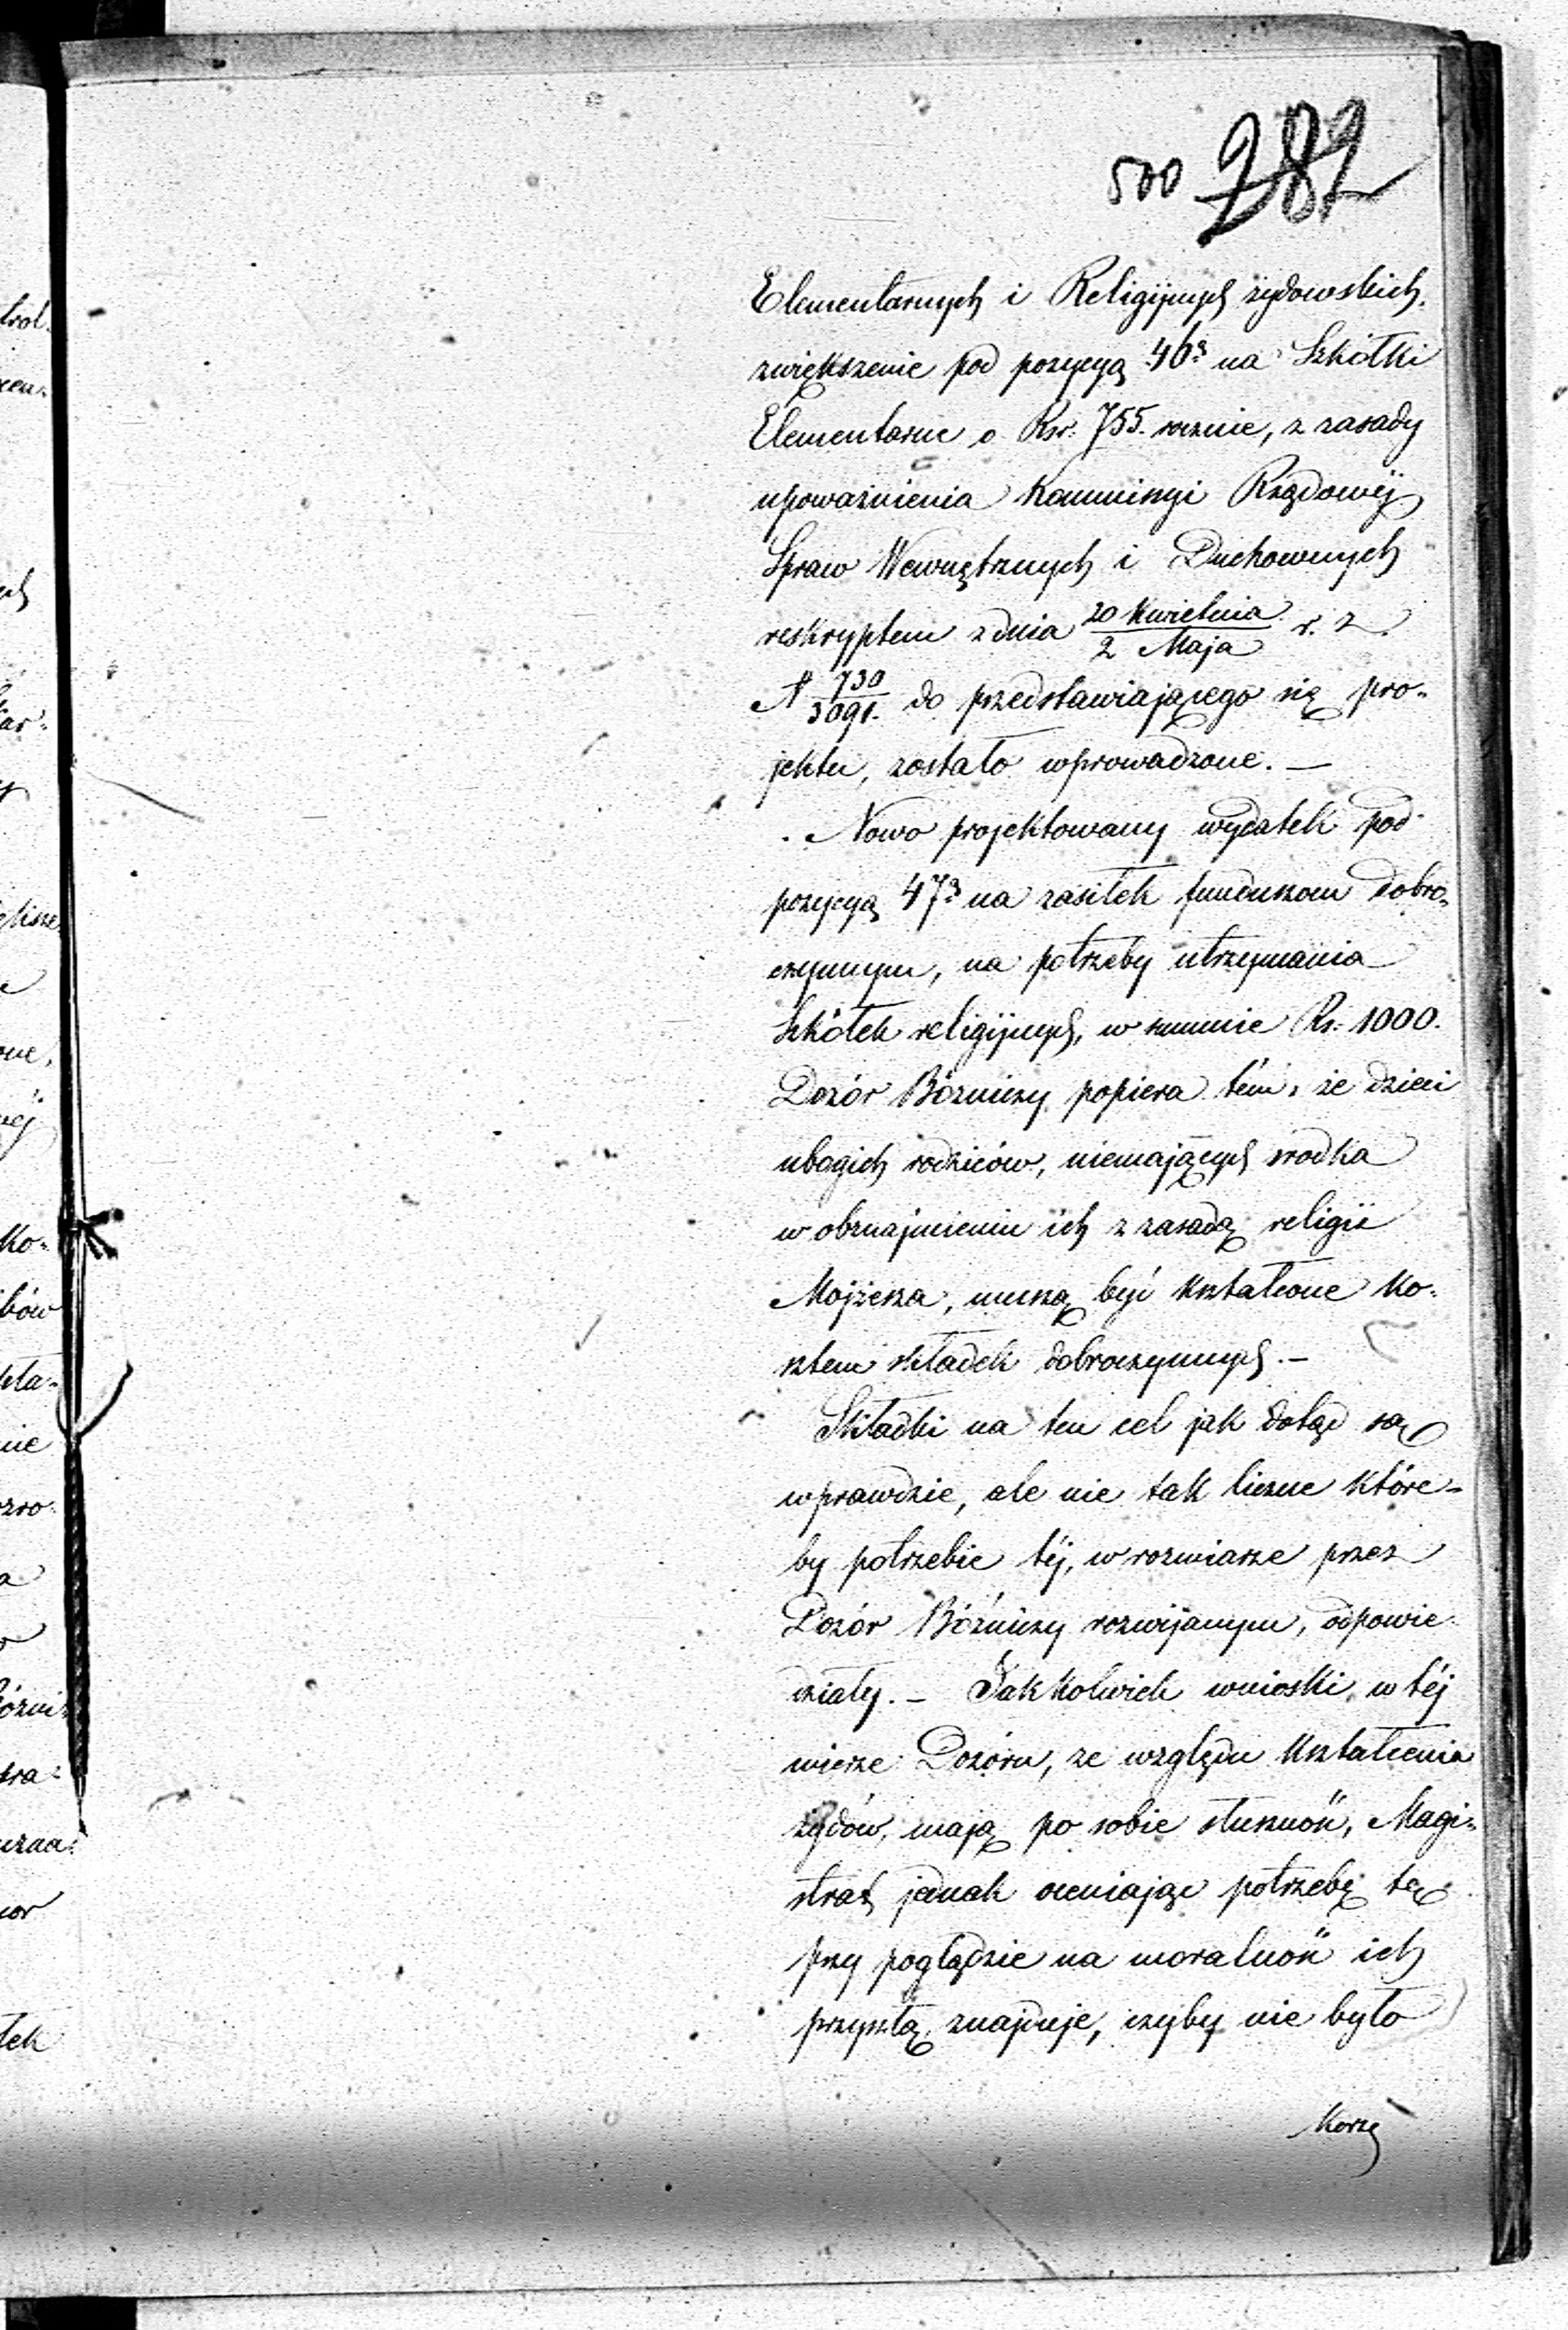 500 282
Elementarnych i Religijnych żydowskich,
zwiększenie pod pozycyą 46ą na Szkółki
Elementarne o Rsr. 755. rocznie, z zasady
upoważnienia Kommissyi Rządowéj
Spraw Wewnętrznych i Duchownych
reskryptem z dnia 20 Kwietnia / 2 Maja r. z.
N 730/3091. do przedstawiającego się pro-
jektu, zostało wprowadzone. —
Nowo projektowany wydatek pod
pozycyą 47ą na zasiłek funduszom dobro-
czynnym, na potrzeby utrzymania
Szkółek religijnych, w summie Rs. 1000.
Dozór Bóżniczy popiera tém, że dzieci
ubogich rodziców, niemających srodka
w obznajmieniu ich z zasadą religii
Mojżesza, muszą być kształcone ko-
sztem składek dobroczynnych. —
Składki na ten cel jak dotąd są
wprawdzie, ale nie tak liczne które-
by potrzebie téj, w rozmiarze przez
Dozór Bóżniczy rozwijanym, odpowie-
działy. — Jakkolwiek wnioski w téj
mierze Dozóru, ze względu kształcenia
żydów, mają po sobie słuszność, Magi-
strat jednak oceniając potrzebę tę
przy poglądzie na moralność ich
przyszłą, znajduje, czyby nie było
Korzy